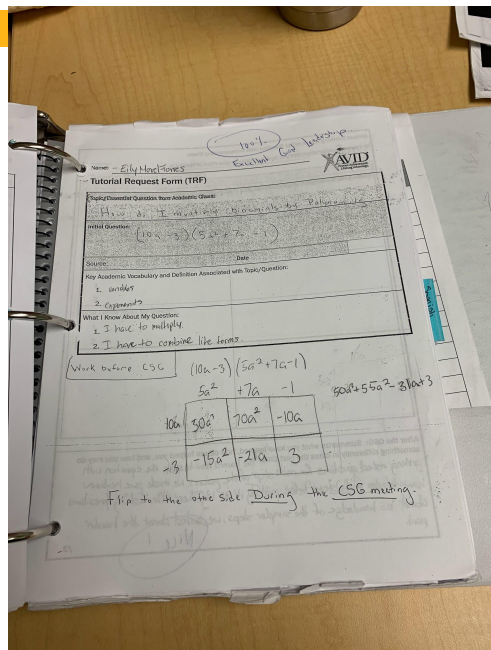 100%
Excellent Good leadership.
AVID
Name:
Tutorial Request Form (TRF)
Topic/Essential Question from Academic Class:
How do I multiply binomials by Polynomials
Initial Question:
(10a -3)(5a²+7a -1)
Source
Date
Key Academic Vocabulary and Definition Associated with Topic/Question:
1. variables
2. exponents
What I Know About My Question:
1. I have to multiply.
2. I have to combine like terms.
Work before CSG
(10a-3)(5a²+7a-1)
5a² +7a -1
10a 50a³ 70a² -10a
50a³+55a²-31a+3
-3 -15a² -21a 3
Flip to the othe side During the CSG meeting.
Spanish